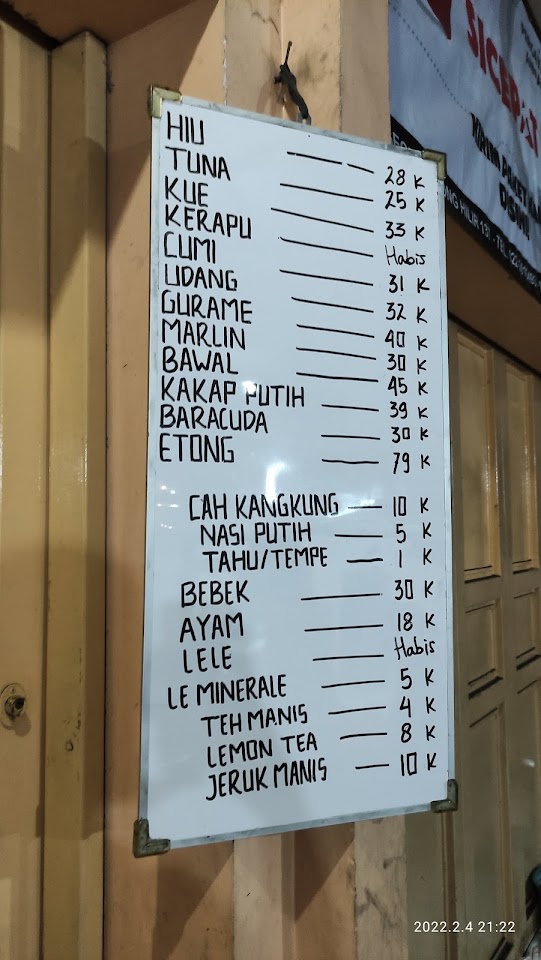 HIU ——— 28 K
TUNA ——— 25 K
KUE ——— 33 K
KERAPU ——— Habis
CUMI ——— 31 K
UDANG ——— 32 K
GURAME ——— 40 K
MARLIN ——— 30 K
BAWAL ——— 45 K
KAKAP PUTIH ——— 39 K
BARACUDA ——— 30 K
ETONG ——— 79 K
CAH KANGKUNG — 10 K
NASI PUTIH — 5 K
TAHU/TEMPE — 1 K
BEBEK ——— 30 K
AYAM ——— 18 K
LELE ——— Habis
LE MINERALE ——— 5 K
TEH MANIS ——— 4 K
LEMON TEA — 8 K
JERUK MANIS — 10 K
SICEPAT
KIRIM
DISINI
HILIR 131 - TEL.
2022.2.4 21:22